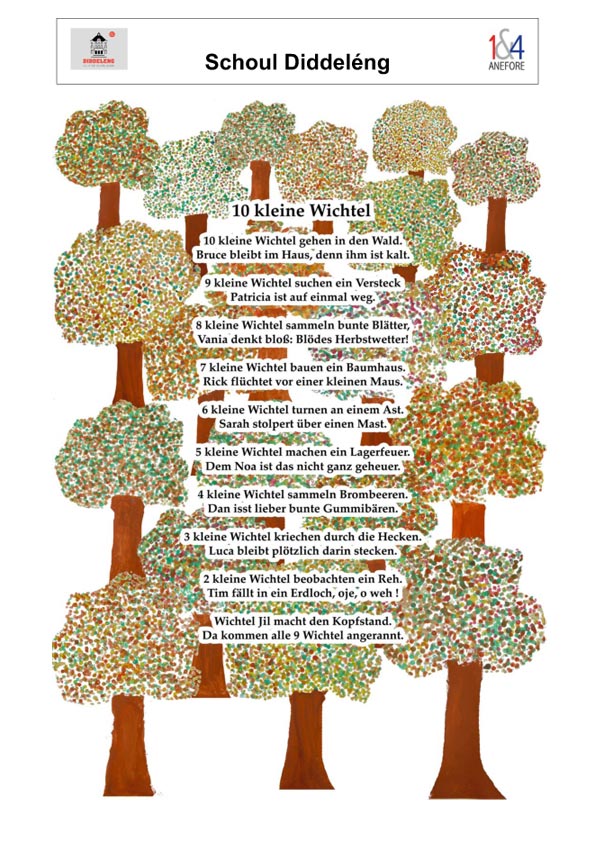 DIDDELÉNG
Schoul Diddeléng
1&4
ANEFORE
10 kleine Wichtel
10 kleine Wichtel gehen in den Wald.
Bruce bleibt im Haus, denn ihm ist kalt.
9 kleine Wichtel suchen ein Versteck
Patricia ist auf einmal weg.
8 kleine Wichtel sammeln bunte Blätter,
Vania denkt bloß: Blödes Herbstwetter!
7 kleine Wichtel bauen ein Baumhaus.
Rick flüchtet vor einer kleinen Maus.
6 kleine Wichtel turnen an einem Ast.
Sarah stolpert über einen Mast.
5 kleine Wichtel machen ein Lagerfeuer.
Dem Noa ist das nicht ganz geheuer.
4 kleine Wichtel sammeln Brombeeren.
Dan isst lieber bunte Gummibären.
3 kleine Wichtel kriechen durch die Hecken.
Luca bleibt plötzlich darin stecken.
2 kleine Wichtel beobachten ein Reh.
Tim fällt in ein Erdloch, oje, o weh !
Wichtel Jil macht den Kopfstand.
Da kommen alle 9 Wichtel angerannt.